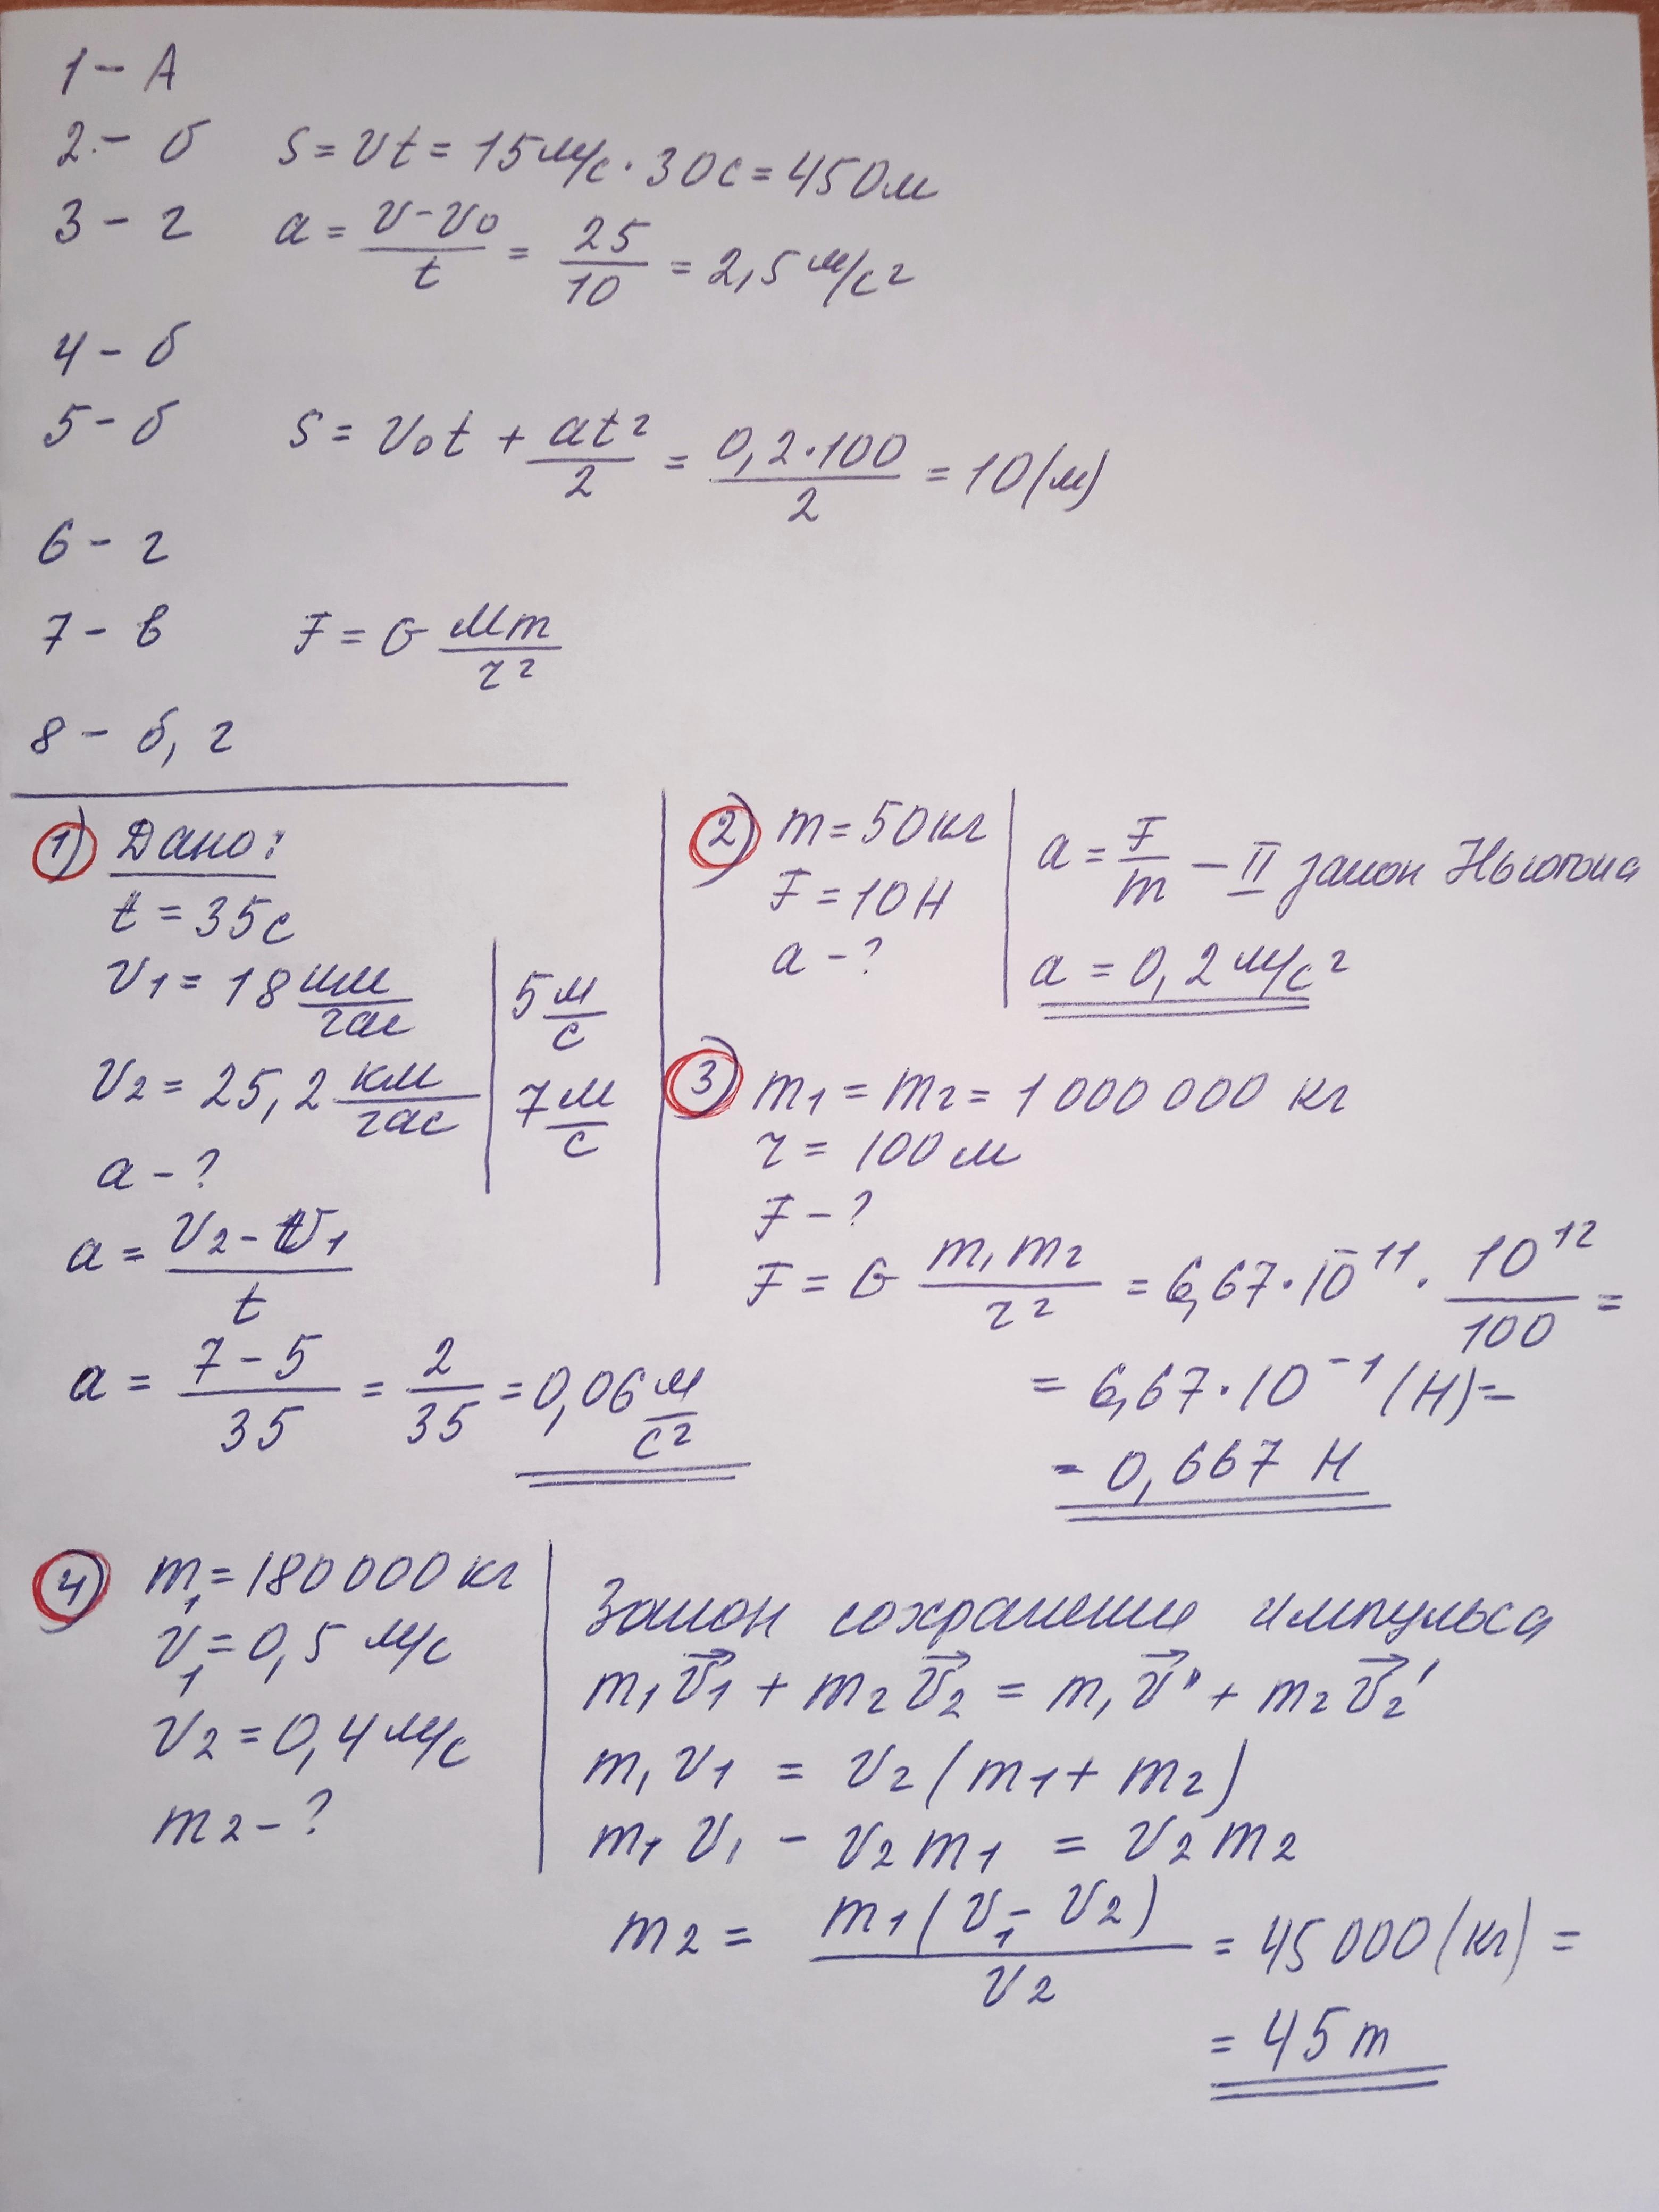 1 - А
2 - б S = Vt = 15 м/с · 30с = 450м
3 - г a = (V - V₀)/t = 25/10 = 2,5 м/с²
4 - б
5 - б S = V₀t + at²/2 = 0,2·100/2 = 10(м)
6 - г
7 - в F = G Mm/r²
8 - б, г
1) Дано:
t = 35с
V₁ = 18 км/час | 5 м/с
V₂ = 25,2 км/час | 7 м/с
a - ?
a = (V₂ - V₁)/t
a = (7 - 5)/35 = 2/35 = 0,06 м/с²
2) m = 50кг
F = 10Н
a - ?
a = F/m - II закон Ньютона
a = 0,2 м/с²
3) m₁ = m₂ = 1 000 000 кг
r = 100 м
F - ?
F = G m₁m₂/r² = 6,67·10⁻¹¹ · 10¹²/100 =
= 6,67·10⁻¹ (Н) =
= 0,667 Н
4) m₁ = 180 000 кг
V₁ = 0,5 м/с
V₂ = 0,4 м/с
m₂ - ?
Закон сохранения импульса
m₁V⃗₁ + m₂V⃗₂ = m₁V⃗' + m₂V⃗₂'
m₁V₁ = V₂(m₁ + m₂)
m₁V₁ - V₂m₁ = V₂m₂
m₂ = m₁(V₁ - V₂)/V₂ = 45 000 (кг) =
= 45 т